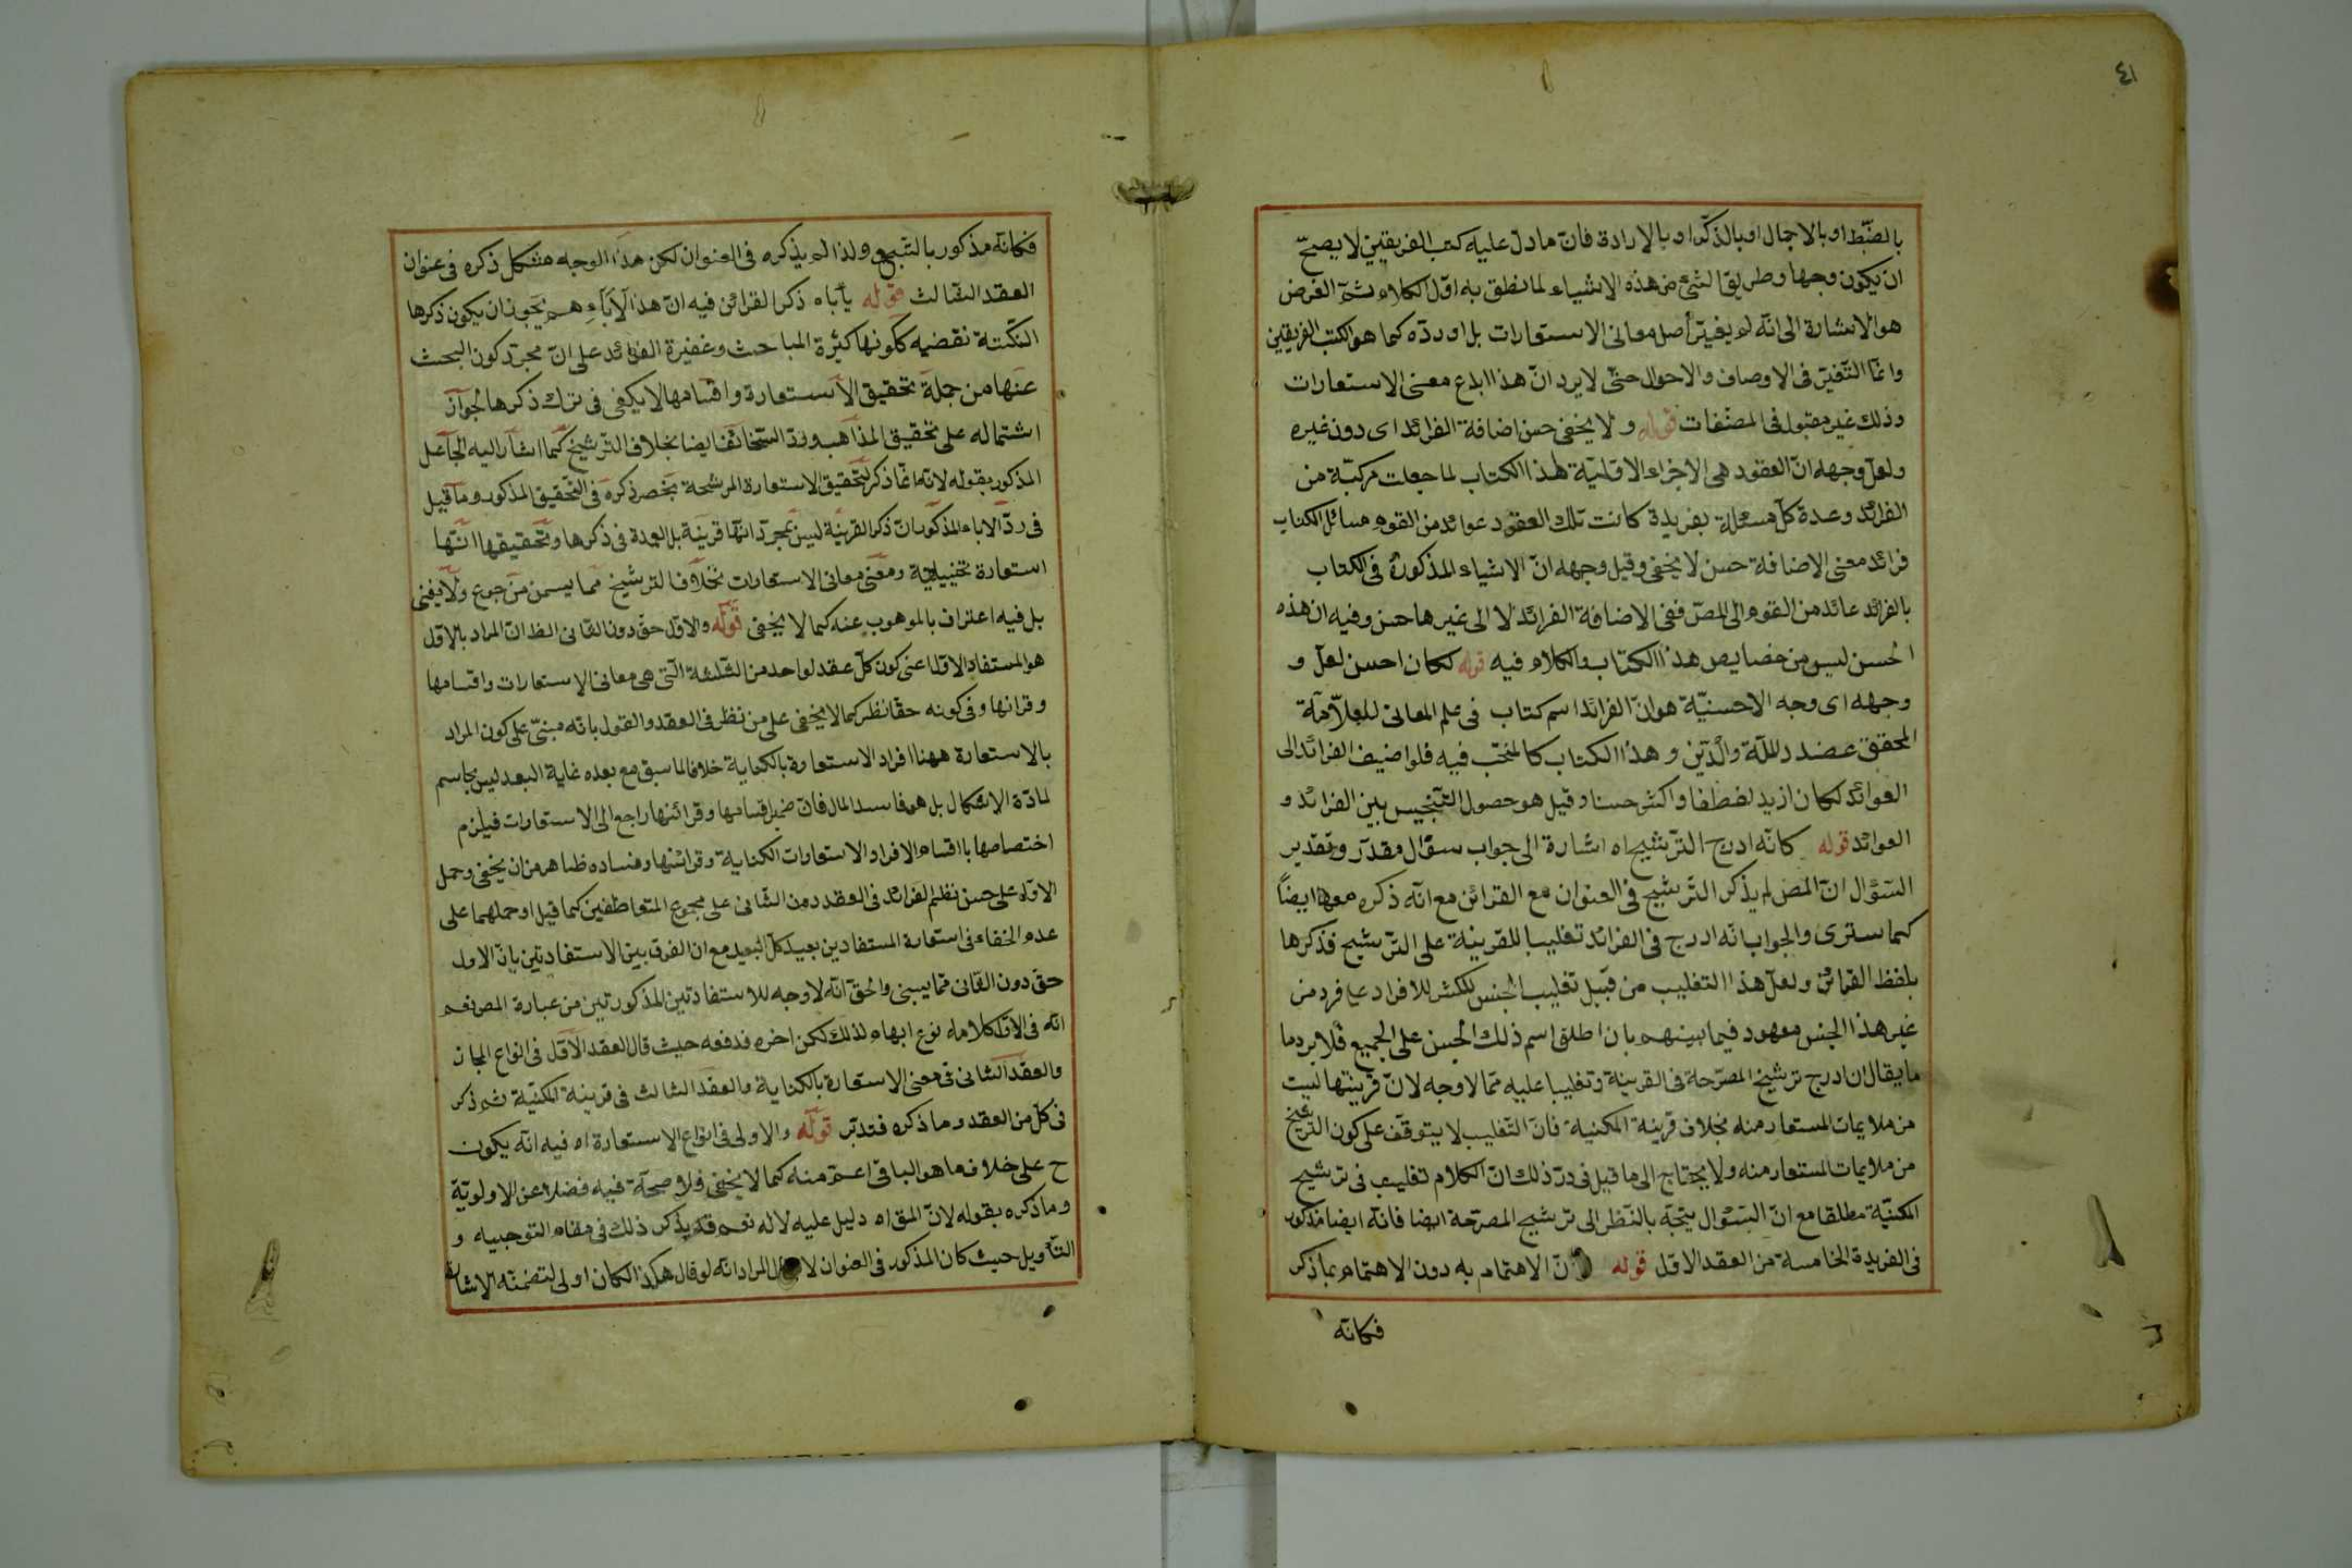 ٤١
بالضبط او بالاجمال او بالذكر او بالارادة فان ما دل عليه كتب الفريقين لا يصح
ان يكون وجها وطريق الشئ من هذه الاشياء لما نطق به اول الكلام ثم الغرض
هو الاشارة الى انه لم يغير أصل معانى الاستعارات بل اورده كما هو الكتب الفريقين
وانما التفنن فى الاوصاف والاحوال حتى لا يرد ان هذا ابداع معنى الاستعارات
وذلك غير مقبول فى المصنفات قوله و لا يخفى حسن اضافة الفرائد اى دون غيره
ولعل وجهه ان العقود هى الاجزاء الاولية لهذا الكتاب لما جعلت مركبة من
الفرائد وعدة كل مسئلة بفريدة كانت تلك العقود عوائد من القوم مسائل الكتاب
فرائد معنى الاضافة حسن لا يخفى وقيل وجهه ان الاشياء المذكورة فى الكتاب
بالفرائد عائد من القوم الى المص ففى الاضافة الفرائد لا الى غيرها حسن وفيه ان هذه
الحسن ليس من خصايص هذا الكتاب والكلام فيه قوله لكان احسن لعل و
وجهه اى وجه الاحسنية هو ان الفرائد اسم كتاب فى علم المعانى للعلامة
المحقق عضد الملة والدين و هذا الكتاب كالمنتخب فيه فلو اضيف الفرائد الى
العوائد لكان ازيد لطفا واكثر حسنا وقيل هو حصول التجنيس بين الفرائد و
العوائد قوله كانه ادرج الترشيح اه اشارة الى جواب سؤال مقدر وتقدير
السؤال ان المص لم يذكر الترشيح فى العنوان مع القرائن مع انه ذكره معها ايضاً
كما سترى والجواب انه ادرج فى الفرائد تغليبا للقرينة على الترشيح فذكرها
بلفظ القرائن ولعل هذا التغليب من قبيل تغليب الجنس للكثير للافراد على فرد من
غير هذا الجنس معهود فيما بينهم بان اطلق اسم ذلك الجنس على الجميع فلا يرد ما
ما يقال ان ادرج ترشيح المصرحة فى القرينة وتغليبا عليه مما لا وجه لان قرينتها ليست
من ملايمات المستعار منه بخلاف قرينة المكنية فان التغليب لا يتوقف على كون الترشيح
من ملايمات المستعار منه ولا يحتاج الى ما قيل فى رد ذلك ان الكلام تغليب فى ترشيح
المكنية مطلقا مع ان السؤال يتجه بالنظر الى ترشيح المصرحة ايضا فانه ايضا مذكور
فى الفريدة الخامسة من العقد الاول قوله لان الاهتمام به دون الاهتمام بما ذكر
فكانه
فكانه مذكور بالتبع ولذا لم يذكره فى العنوان لكن هذا الوجه مشكل ذكره فى عنوان
العقد الثالث قوله يأباه ذكر القرائن فيه ان هذا الأباء هم يجوز ان يكون ذكرها
النكتة نقضيه ككونها كثرة المباحث وغفيرة الفوائد على ان مجرد كون البحث
عنها من جملة تحقيق الاستعارة واقسامها لا يكفى فى ترك ذكرها لجواز
اشتماله على تحقيق المذاهب ورد السخائف ايضا بخلاف الترشيح كما اشار اليه الجاعل
المذكور بقوله لانه انما ذكر لتحقيق الاستعارة المرشحة بخصر ذكره فى التحقيق المذكور وما قيل
فى رد الاباء المذكور ان ذكر القرينة ليس بمجرد انها قرينة بل العمدة فى ذكرها وتحقيقها انها
استعارة تخييلية ومعنى معانى الاستعارات بخلاف الترشيح مما يسمن من جوع ولا يغنى
بل فيه اعتراف بالموهوب عنه كما لا يخفى قوله والاول حق دون الثانى الظ ان المراد بالاول
هو المستفاد الاول اعنى كون كل عقد لواحد من الثلثة التى هى معانى الاستعارات واقسامها
وقرانها وفى كونه حقا نظر كما لا يخفى على من نظر فى العقد والقول بانه مبنى على كون المراد
بالاستعارة ههنا افراد الاستعارة بالكناية خلافا لما سبق مع بعده غاية البعد ليس بحاسم
لمادة الاشكال بل هو فاسد المال فان ضمير اقسامها وقرائنها راجع الى الاستعارات فيلزم
اختصاصها باقسام الافراد الاستعارات الكناية وقرائنها وفساده ظاهر من ان يخفى وحمل
الاول على حسن نظم الفرائد فى العقد دون الثانى على مجموع المتعاطفين كما قيل او حملهما على
عدم الخفاء فى استعارة المستفادين بعيد كل البعيد مع ان الفرق بين الاستفادتين بان الاول
حق دون الثانى مما يبنى والحق انه لا وجه للاستفادتين المذكورتين من عبارة المص نعم
انه فى الاول كلامه نوع ابهام لذلك لكن اخره فدفعه حيث قال العقد الاول فى انواع المجاز
والعقد الثانى فى معنى الاستعارة بالكناية والعقد الثالث فى قرينة المكنية ثم ذكر
فى كل من العقد وما ذكره فتدبر قوله والاولى فى انواع الاستعارة اه فيه انه يكون
ح على خلاف ما هو الباقى اعم منه كما لا يخفى فلا صحة فيه فضلا عن الاولوية
وما ذكره بقوله لان المق اه دليل عليه لا له نعم قد يذكر ذلك فى مقام التوجيه و
التأويل حيث كان المذكور فى العنوان المراد انه لو قال هكذا لكان اولى لتضمنه الاشارة